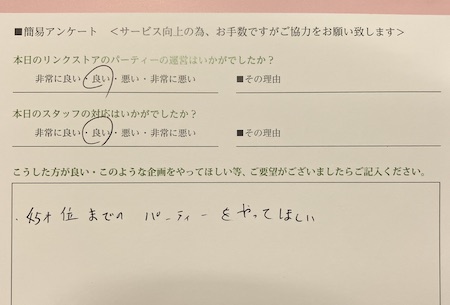 ■簡易アンケート ＜サービス向上の為、お手数ですがご協力をお願い致します＞
本日のリンクストアのパーティーの運営はいかがでしたか？
非常に良い・良い・悪い・非常に悪い ■その理由
本日のスタッフの対応はいかがでしたか？
非常に良い・良い・悪い・非常に悪い ■その理由
こうした方が良い・このような企画をやってほしい等、ご要望がございましたらご記入ください。
・45才位までの パーティーをやってほしい